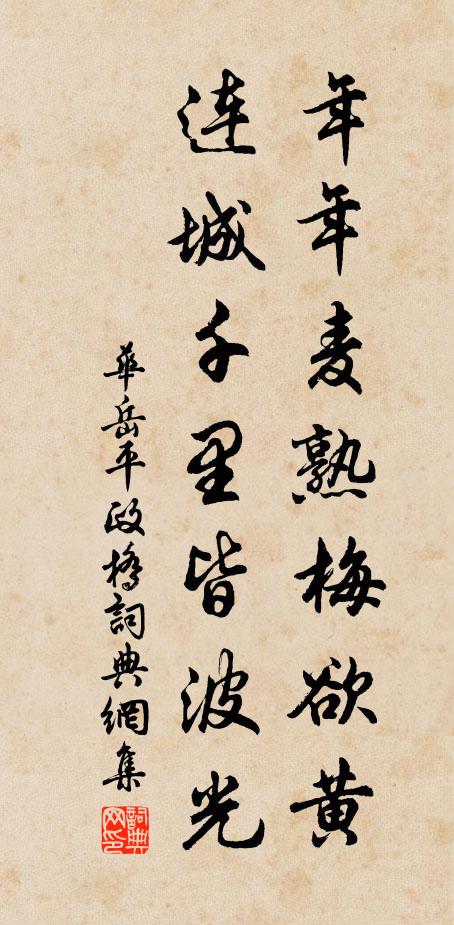 年年麦熟梅欲黄
連城千里皆波光
華岳平政橋詞典網集
詞典網印